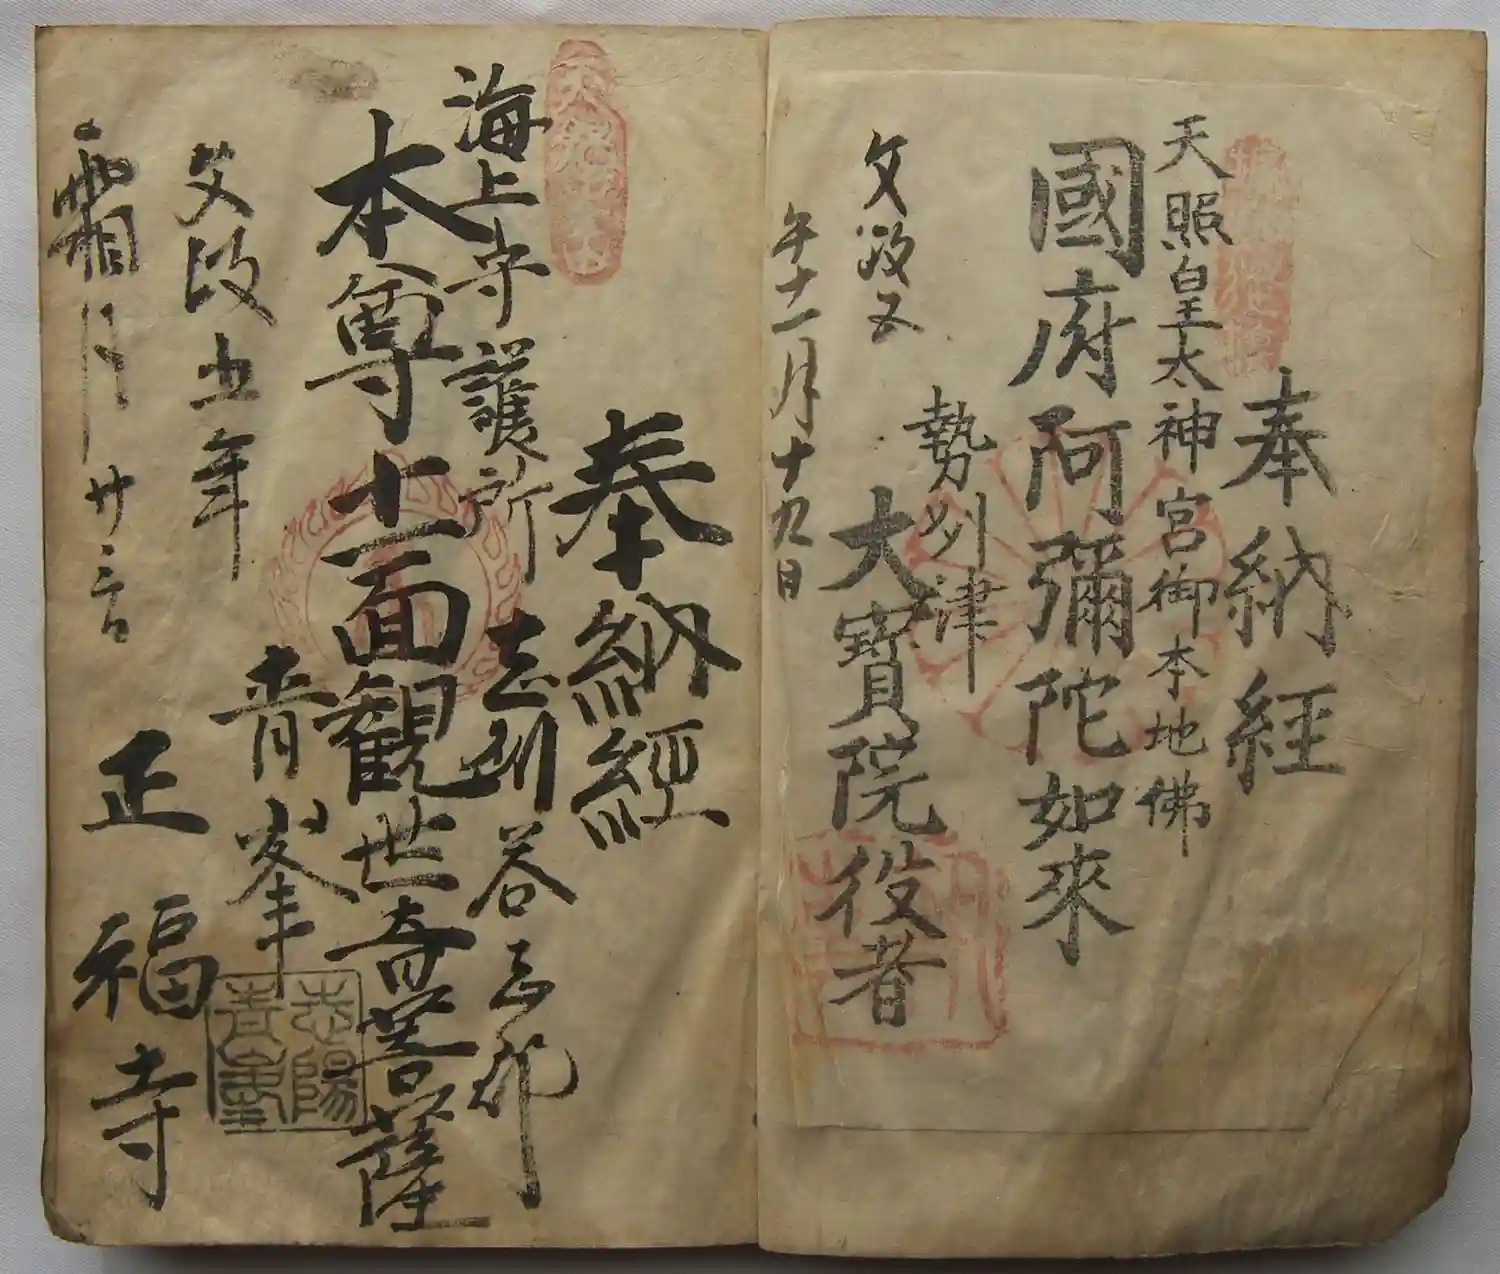 奉納経
天照皇太神宮御本地佛
國府阿彌陀如來
勢州津
大寶院役者
文政五
年十一月十九日
奉納經
志刕答志郡
海上守護所
本尊十一面觀世音菩薩
青峯
正福寺
文政五年
霜月廿
志陽
青峯